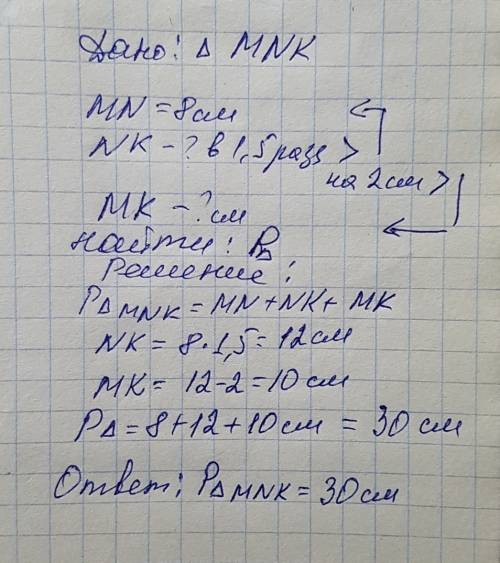 Дано: Δ MNK
MN = 8 см
NK - ? в 1,5 раза >
на 2 см >
MK - ? см
Найти: PΔ
Решение:
PΔMNK = MN + NK + MK
NK = 8 · 1,5 = 12 см
MK = 12 - 2 = 10 см
PΔ = 8 + 12 + 10 см = 30 см
Ответ: PΔMNK = 30 см